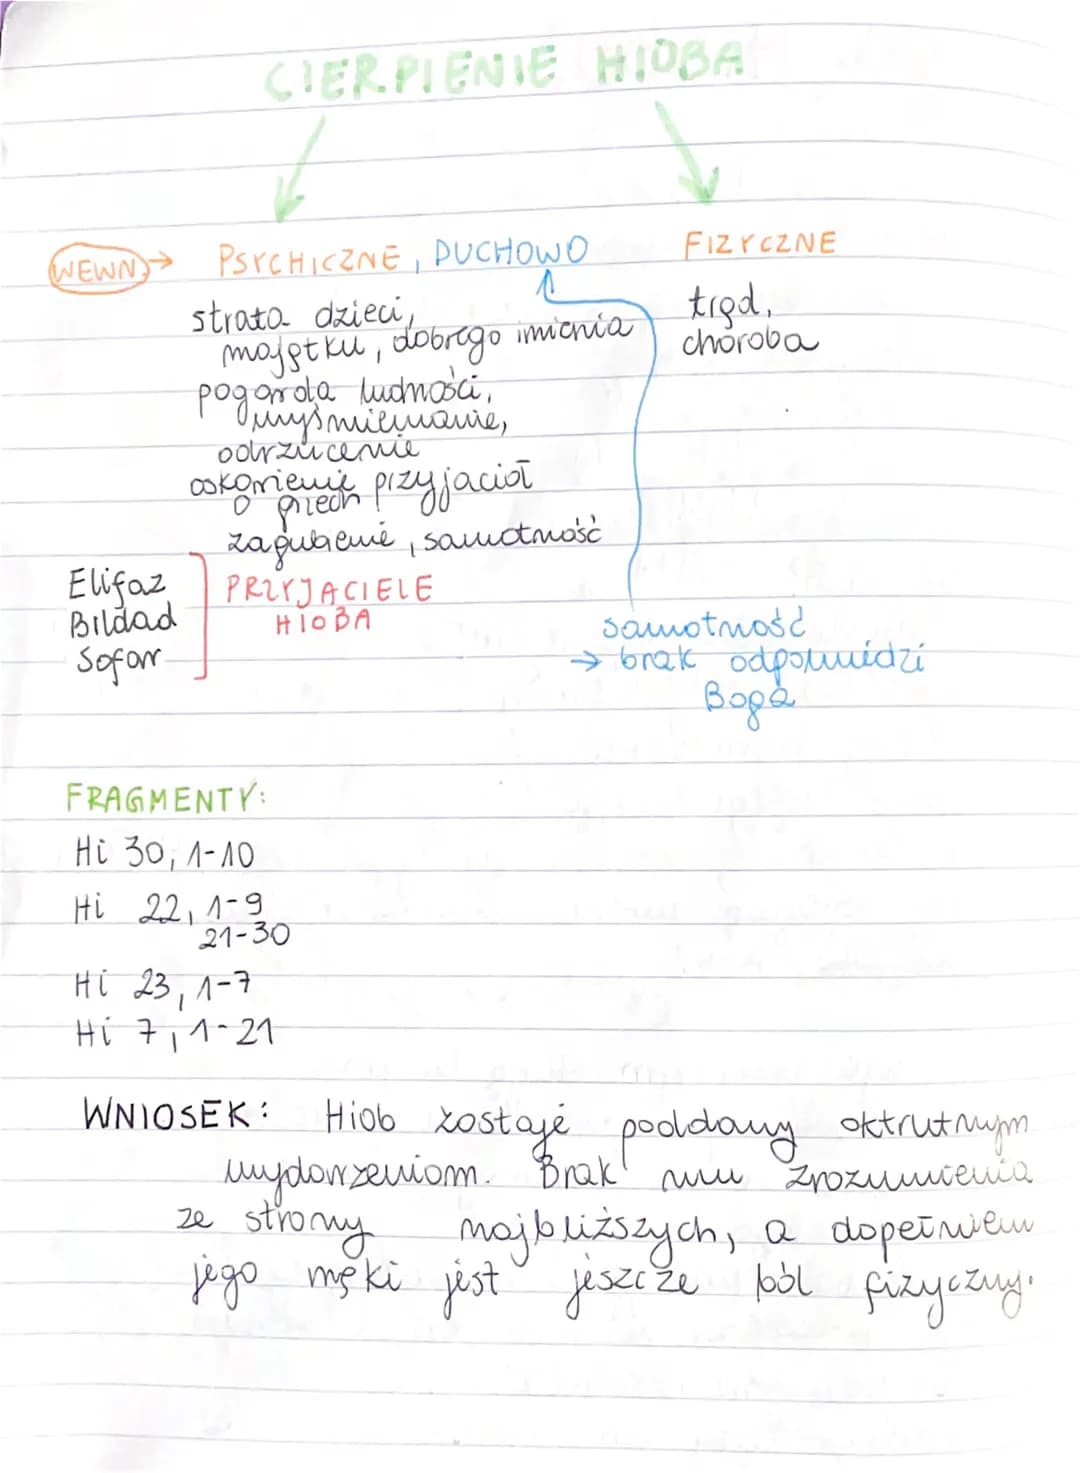 CIERPIENIE HIOBA
WEWN. → PSYCHICZNE, DUCHOWO
strata dzieci,
majątku, dobrego imienia
pogarda ludności,
wyśmiewanie,
odrzucenie
oskarżenie przyjaciół
o grzech
zagubienie, samotność
FIZYCZNE
trąd,
choroba
Elifaz
Bildad
Sofar
PRZYJACIELE
HIOBA
samotność
→ brak odpowiedzi
Boga
FRAGMENTY:
Hi 30, 1-10
Hi 22, 1-9
21-30
Hi 23, 1-7
Hi 7, 1-21
WNIOSEK: Hiob zostaje poddany oktrutnym
wydarzeniom. Brak mu zrozumienia
ze strony najbliższych, a dopełnieniem
jego męki jest jeszcze ból fizyczny.